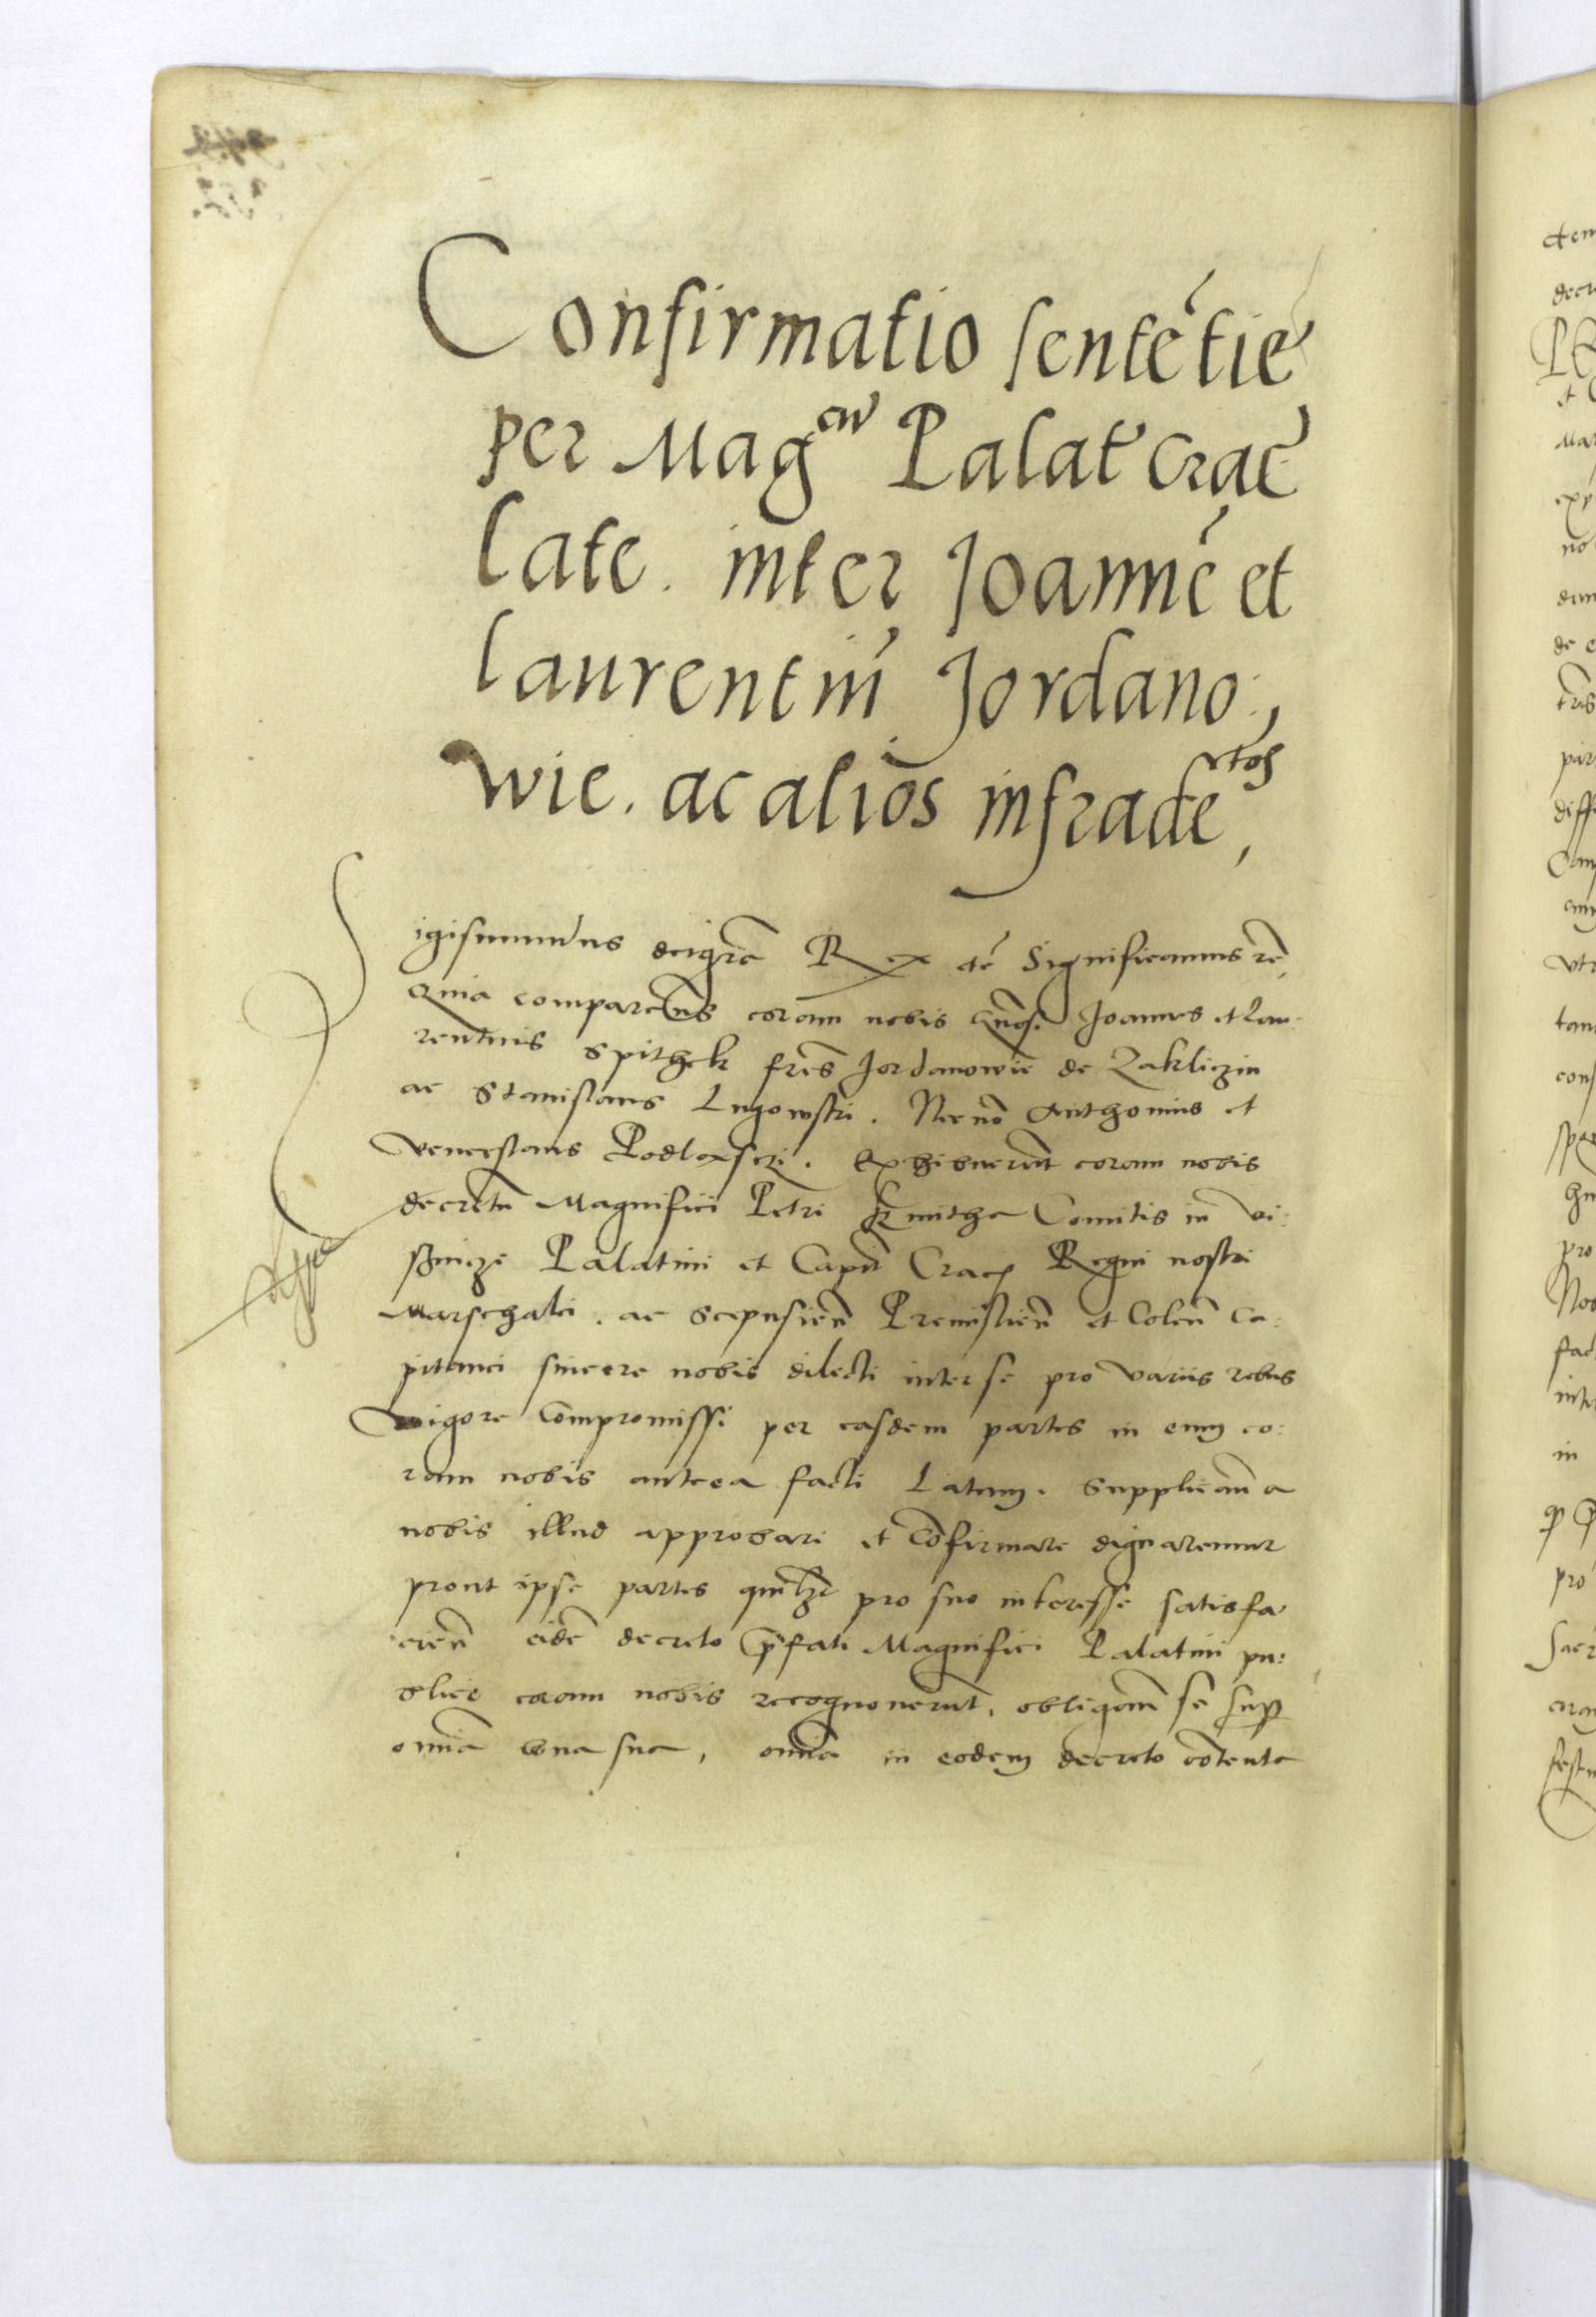 Confirmatio sentētie
per Mag^cū Palat̄ Crac̄
late. inter Joannē et
laurentiū Jordano,
wie. ac alios infrade^ctos,
Sigismundus dei gr̄a Rex etc̄ Significamus etc̄,
Quia comparen̄s coram nobis Gn̄osi Joannes et Lau-
rentius Spithek fr̄es Jordanowie de Zakliczin
ac Stanislaus Lugowski. Necnō Anthonius et
Venceslaus Podloxsczi. Exhibuerūt coram nobis
decretū Magnifici Petri Kmitha Comitis in Vi:
sznicze Palatini et Capit̄ Crac̄ Regni nostri
Marschalci. ac Scepusien̄ Premislien̄ et Colen̄ Ca:
pitanei sincere nobis dilecti inter se pro variis rebus
vigore Compromissi per easdem partes in eum co:
ram nobis antea facti Latum. Supplican̄ a
nobis illud approbari et cōfirmare dignaremur
prout ipse partes quel̄t pro suo interesse satisfa
cien̄ eidē decreto p̄fati Magnifici Palatini pu:
blice coram nobis recognouerūt, obligan̄ se sup̄
omīa bona sua, omīa in eodem decreto cōtenta